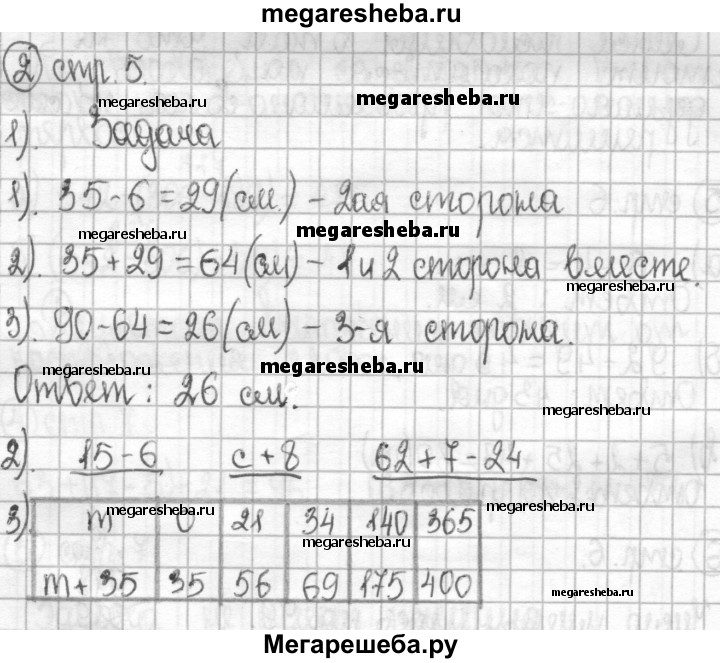 megaresheba.ru
2 стр. 5.
megaresheba.ru megaresheba.ru
1). Задача
1). 35-6=29(см.) - 2ая сторона
megaresheba.ru megaresheba.ru
2). 35+29=64(см) - 1 и 2 сторона вместе.
megaresheba.ru
3). 90-64=26(см) - 3-я сторона.
megaresheba.ru megaresheba.ru
Ответ: 26 см.
megaresheba.ru
2). 15-6 с+8 62+7-24
3) m 0 21 34 140 365
megaresheba.ru megaresheba.ru megaresheba.ru
m+35 35 56 69 175 400
megaresheba.ru
Мегарешеба.ру